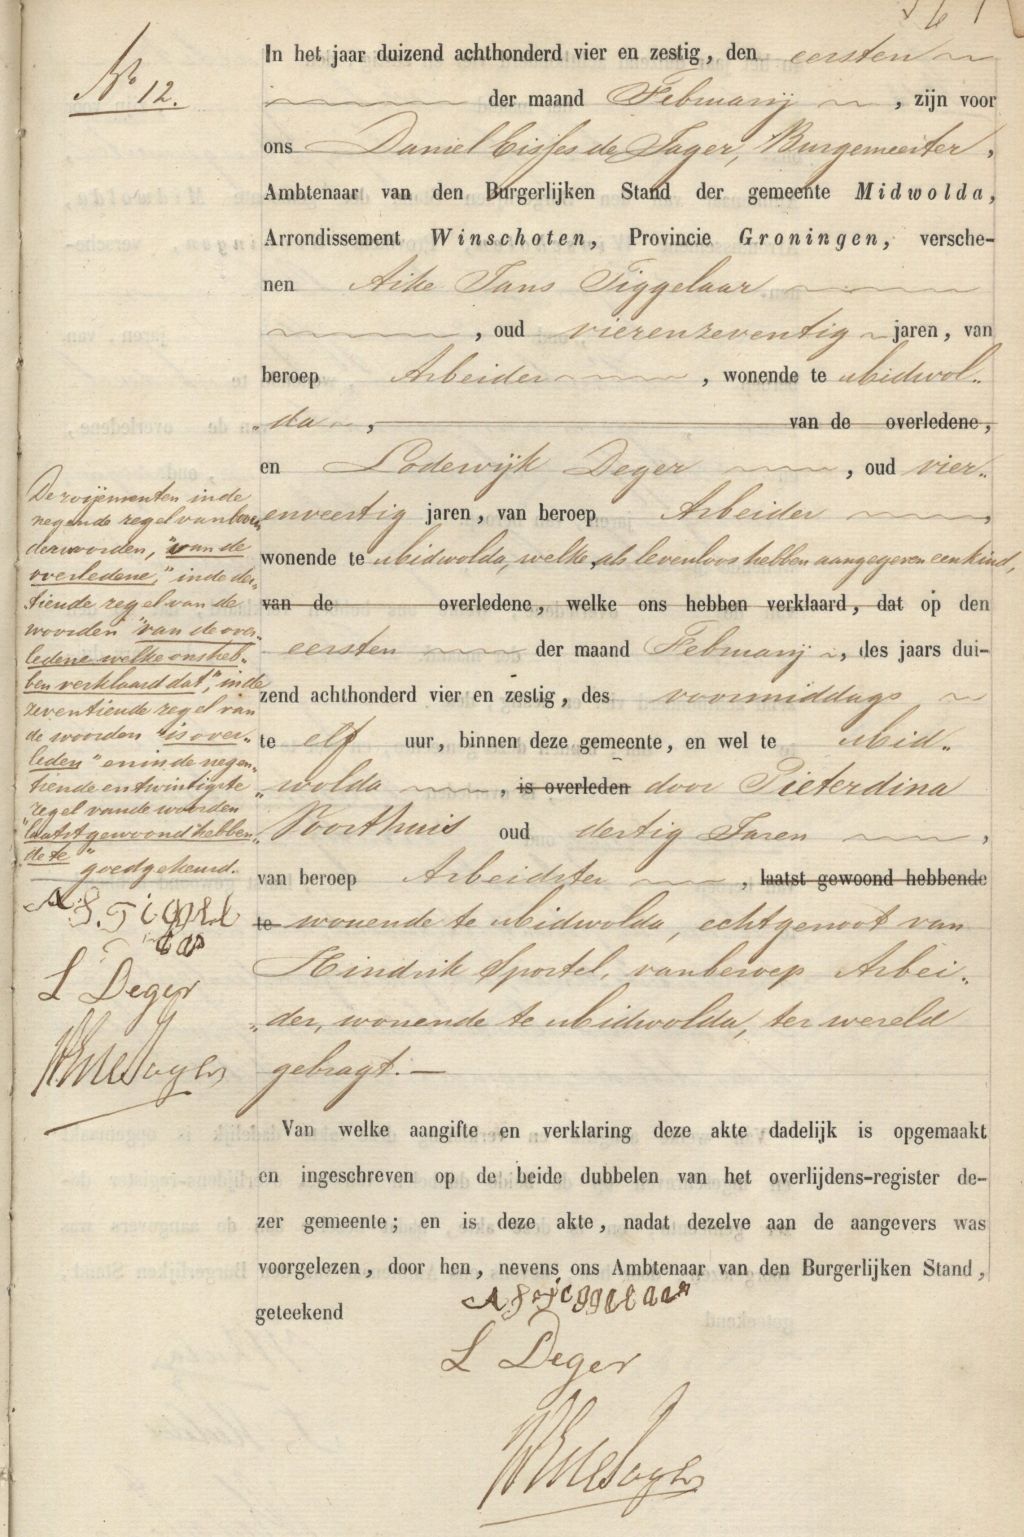 No 12.
In het jaar duizend achthonderd vier en zestig, den eersten
der maand Februarij, zijn voor
ons Daniel Cisses de Jager, Burgemeester,
Ambtenaar van den Burgerlijken Stand der gemeente Midwolda,
Arrondissement Winschoten, Provincie Groningen, versche-
nen Aike Jans Tiggelaar
, oud vierenzeventig jaren, van
beroep Arbeider, wonende te Midwol„
„da, van de overledene,
en Lodewijk Deger, oud vier„
enveertig jaren, van beroep Arbeider,
wonende te Midwolda, welke, als levenloos hebben aangegeven een kind,
van de overledene, welke ons hebben verklaard, dat op den
eersten der maand Februarij, des jaars dui-
zend achthonderd vier en zestig, des voormiddags
te elf uur, binnen deze gemeente, en wel te Mid„
„wolda, is overleden door Pieterdina
Poorthuis oud dertig Jaren,
van beroep Arbeidster, laatst gewoond hebbende
te wonende te Midwolda, echtgenoot van
Hindrik Sportel, van beroep Arbei„
„der, wonende te Midwolda, ter wereld
gebragt.
Van welke aangifte en verklaring deze akte dadelijk is opgemaakt
en ingeschreven op de beide dubbelen van het overlijdens-register de-
zer gemeente; en is deze akte, nadat dezelve aan de aangevers was
voorgelezen, door hen, nevens ons Ambtenaar van den Burgerlijken Stand,
geteekend
A J Tiggelaar
L Deger
De roijementen in de
negende regel van
der woorden, "van de
overledene," in de der„
tiende regel van de
woorden "van de over„
ledene welke ons heb„
ben verklaard dat", in de
zeventiende regel van
de woorden "is over„
leden" en in de negen„
tiende en twintigste
regel van de woorden
"laatst gewoond hebben„
de te" goedgekeurd.
A J. Tiggel
aar
L Deger